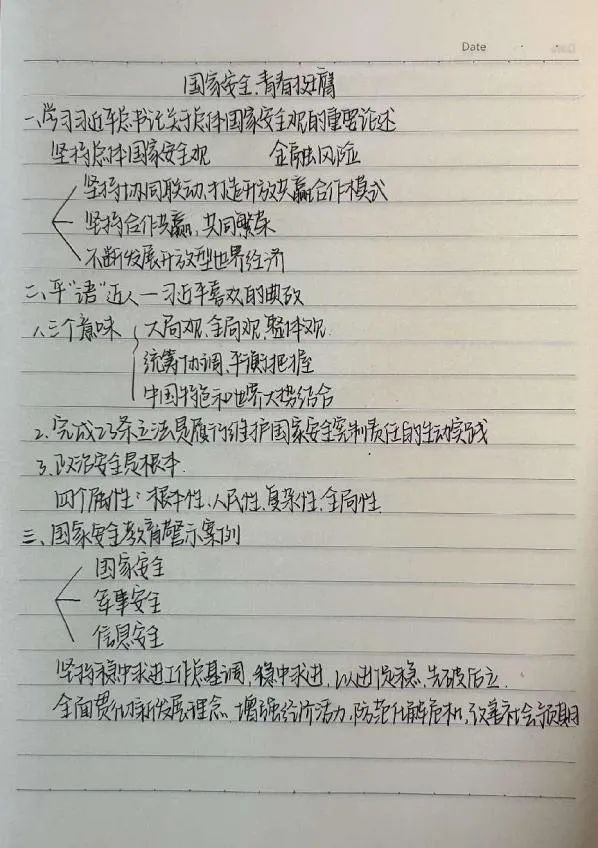 Date
国家安全,青春挺膺
一、学习习近平总书记关于总体国家安全观的重要论述
坚持总体国家安全观 金融风险
坚持协同联动,打造开放共赢合作模式
坚持合作共赢,共同繁荣
不断发展开放型世界经济
二、平“语”近人—习近平喜欢的典故
1.三个意味 大局观、全局观、整体观
统筹协调、平衡把握
中国特色和世界大势结合
2.完成23条立法是履行维护国家安全宪制责任的生动实践
3.政治安全是根本.
四个属性:根本性、人民性、复杂性、全局性
三、国家安全教育警示案例
国家安全
军事安全
信息安全
坚持稳中求进工作总基调,稳中求进,以进促稳,先破后立.
全面贯彻新发展理念,增强经济活力,防范化解危机,改善社会预期